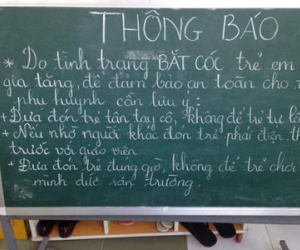 THÔNG BÁO
* Do tình trạng BẮT CÓC trẻ em
gia tăng, để đảm bảo an toàn cho
phụ huynh cần lưu ý:
+ Đưa đón trẻ tận tay cô, không để trẻ tự
+ Nếu nhờ người khác đón trẻ phải điện
trước với giáo viên
+ Đưa đón trẻ đúng giờ, không để trẻ chơi
mình dưới sân trường.